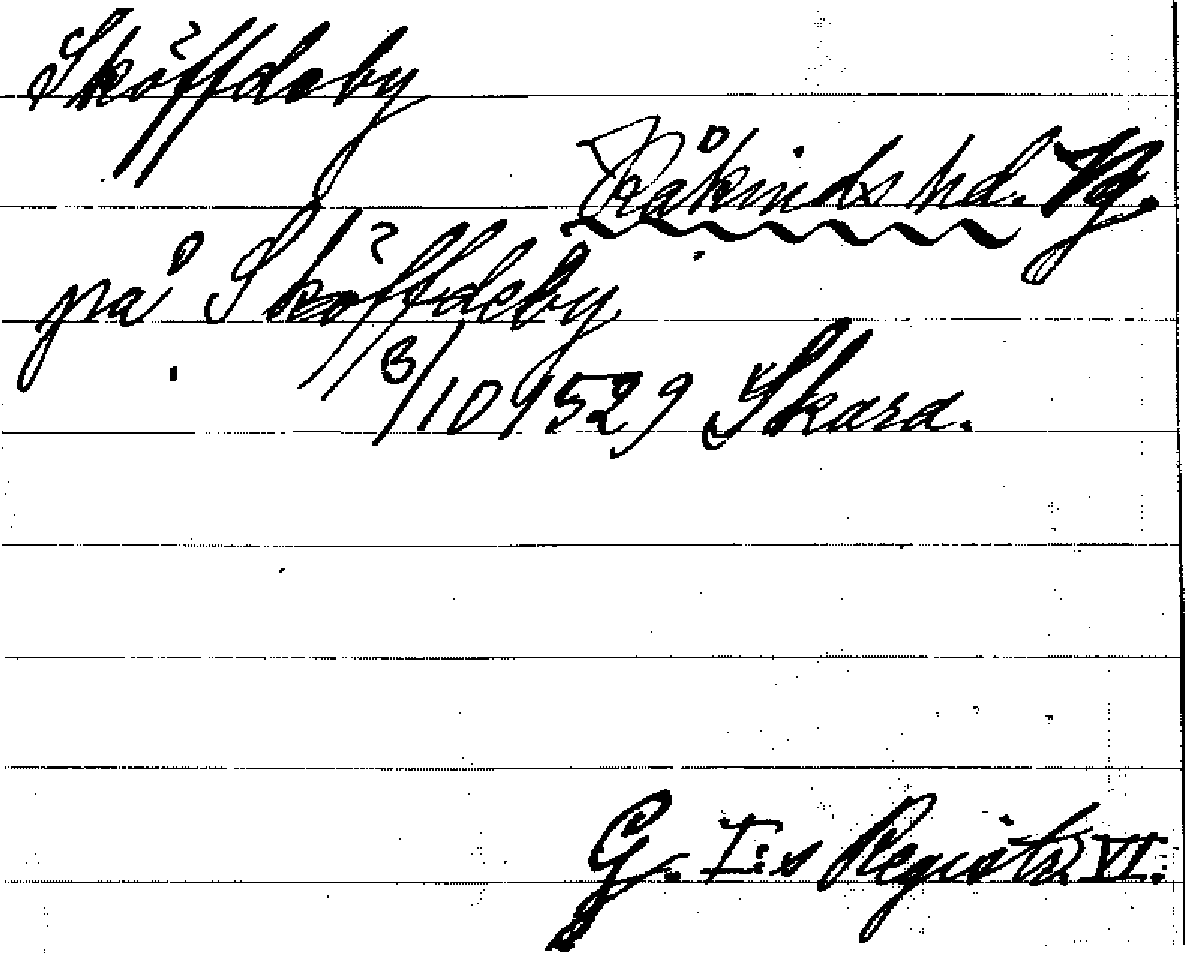 Sköffdeby
Kåkinds hd. Vg.
på Sköffdeby
8/10 1529 Skara.
G. I:s Registr. VI.